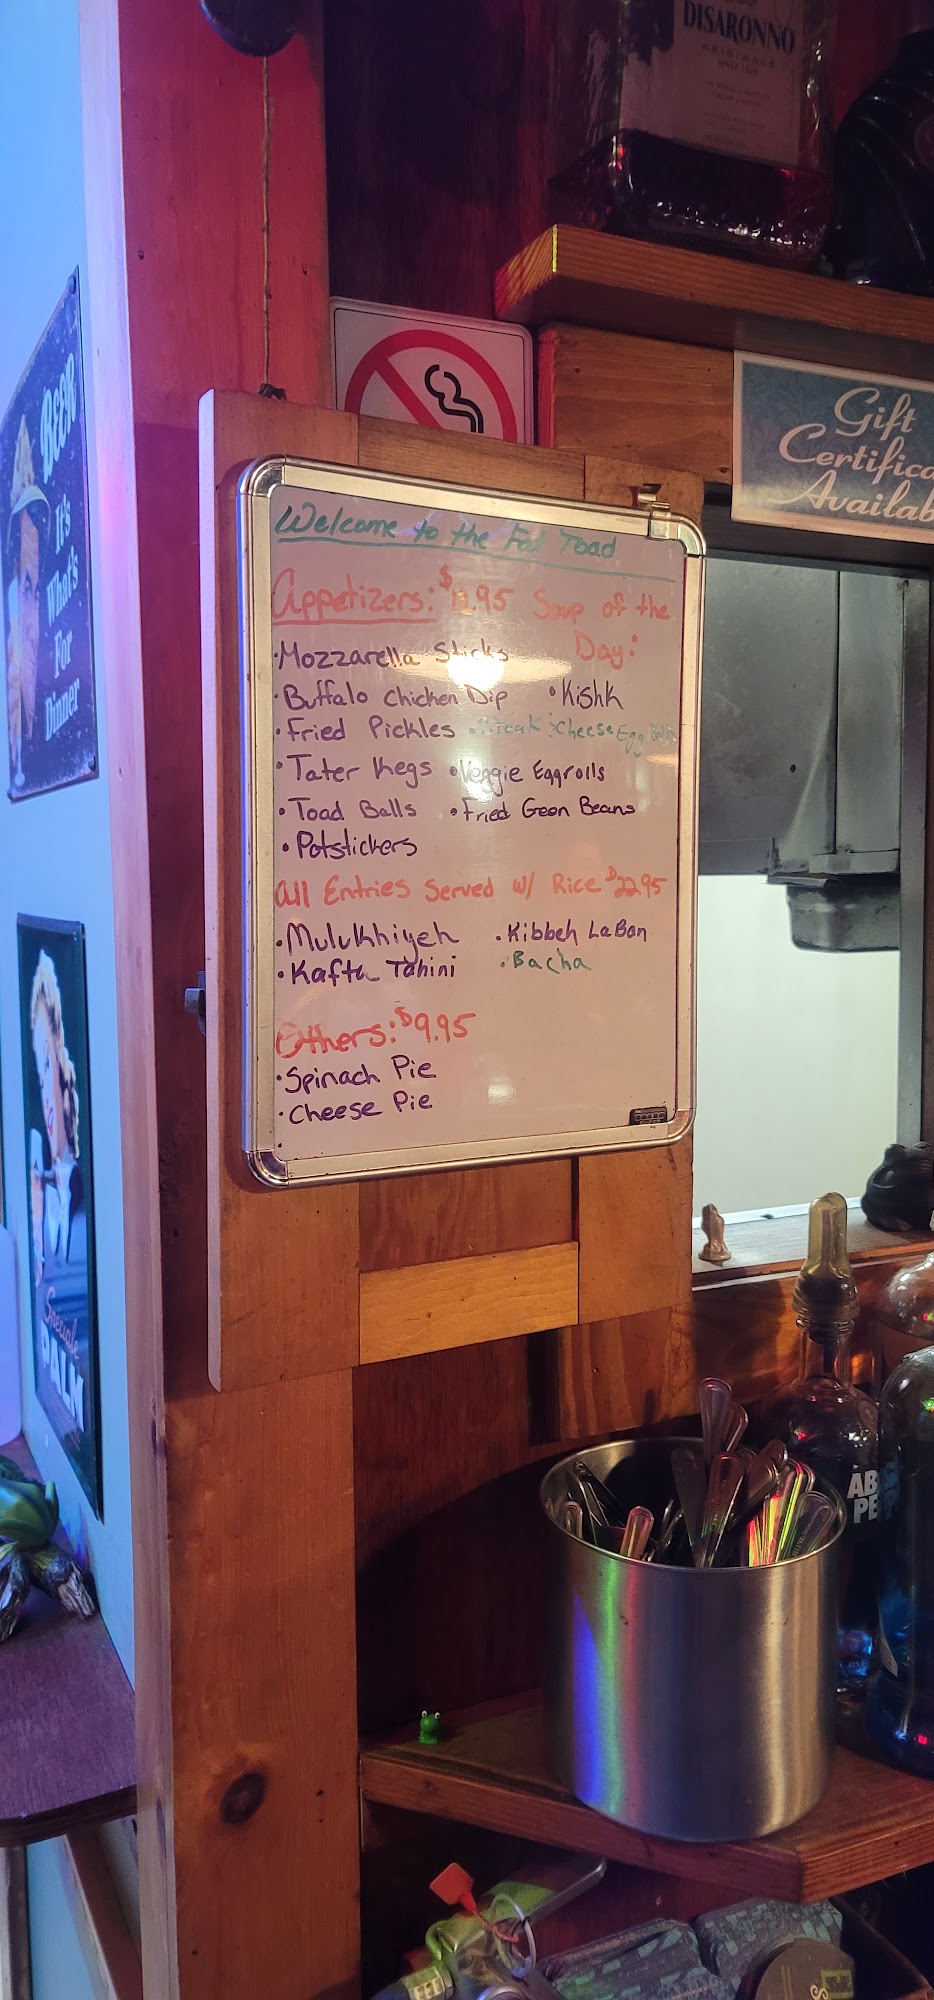 DISARONNO
ORIGINALE
SINCE 1525
Gift
Certifica
Availab
BEER
It's
What's
For
Dinner
Welcome to the Fat Toad
Appetizers: $12.95 Soup of the
Day:
·Mozzarella Sticks
·Buffalo Chicken Dip •Kishk
•Fried Pickles •Steak &Cheese Egg
•Tater Kegs •Veggie Eggrolls
•Toad Balls •Fried Geen Beans
•Potstickers
All Entries Served w/ Rice $22.95
·Mulukhiyeh ·Kibbeh LaBan
•Kafta Tahini ·Bacha
Others: $9.95
·Spinach Pie
·Cheese Pie
Special
PALM
AB
PE